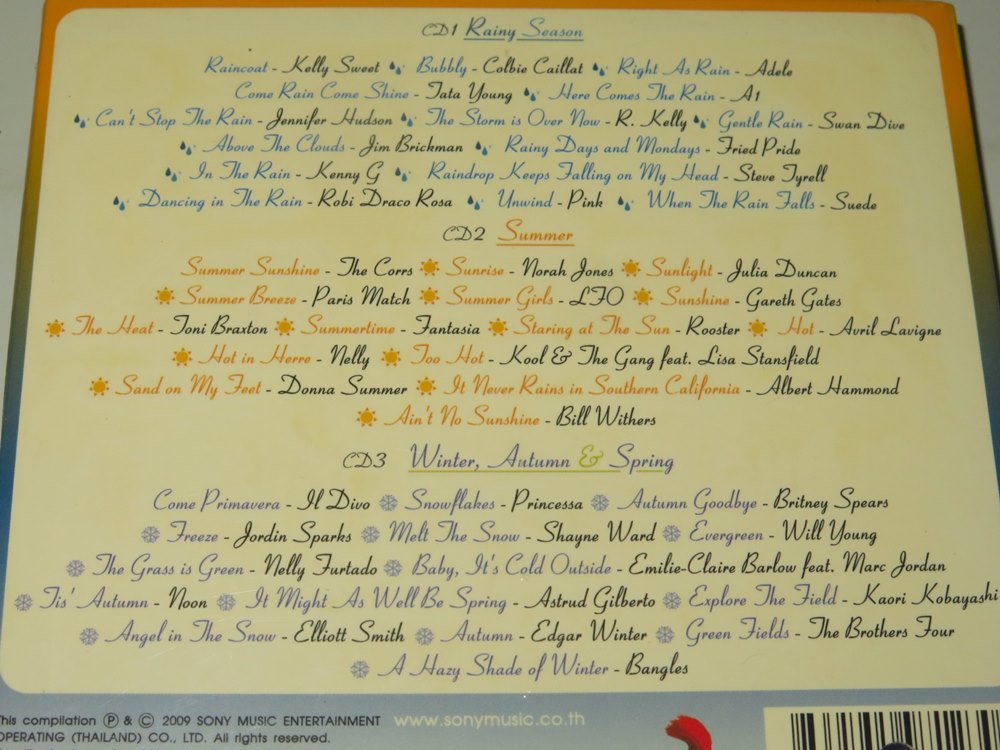 CD1 Rainy Season
Raincoat - Kelly Sweet Bubbly - Colbie Caillat Right As Rain - Adele
Come Rain Come Shine - Tata Young Here Comes The Rain - A1
Can't Stop The Rain - Jennifer Hudson The Storm is Over Now - R. Kelly Gentle Rain - Swan Dive
Above The Clouds - Jim Brickman Rainy Days and Mondays - Fried Pride
In The Rain - Kenny G Raindrop Keeps Falling on My Head - Steve Tyrell
Dancing in The Rain - Robi Draco Rosa Unwind - Pink When The Rain Falls - Suede
CD2 Summer
Summer Sunshine - The Corrs Sunrise - Norah Jones Sunlight - Julia Duncan
Summer Breeze - Paris Match Summer Girls - LFO Sunshine - Gareth Gates
The Heat - Toni Braxton Summertime - Fantasia Staring at The Sun - Rooster Hot - Avril Lavigne
Hot in Herre - Nelly Too Hot - Kool & The Gang feat. Lisa Stansfield
Sand on My Feet - Donna Summer It Never Rains in Southern California - Albert Hammond
Ain't No Sunshine - Bill Withers
CD3 Winter, Autumn & Spring
Come Primavera - Il Divo Snowflakes - Princessa Autumn Goodbye - Britney Spears
Freeze - Jordin Sparks Melt The Snow - Shayne Ward Evergreen - Will Young
The Grass is Green - Nelly Furtado Baby, It's Cold Outside - Emilie-Claire Barlow feat. Marc Jordan
Tis' Autumn - Noon It Might As Well Be Spring - Astrud Gilberto Explore The Field - Kaori Kobayashi
Angel in The Snow - Elliott Smith Autumn - Edgar Winter Green Fields - The Brothers Four
A Hazy Shade of Winter - Bangles
This compilation ℗ & © 2009 SONY MUSIC ENTERTAINMENT www.sonymusic.co.th
OPERATING (THAILAND) CO., LTD. All rights reserved.